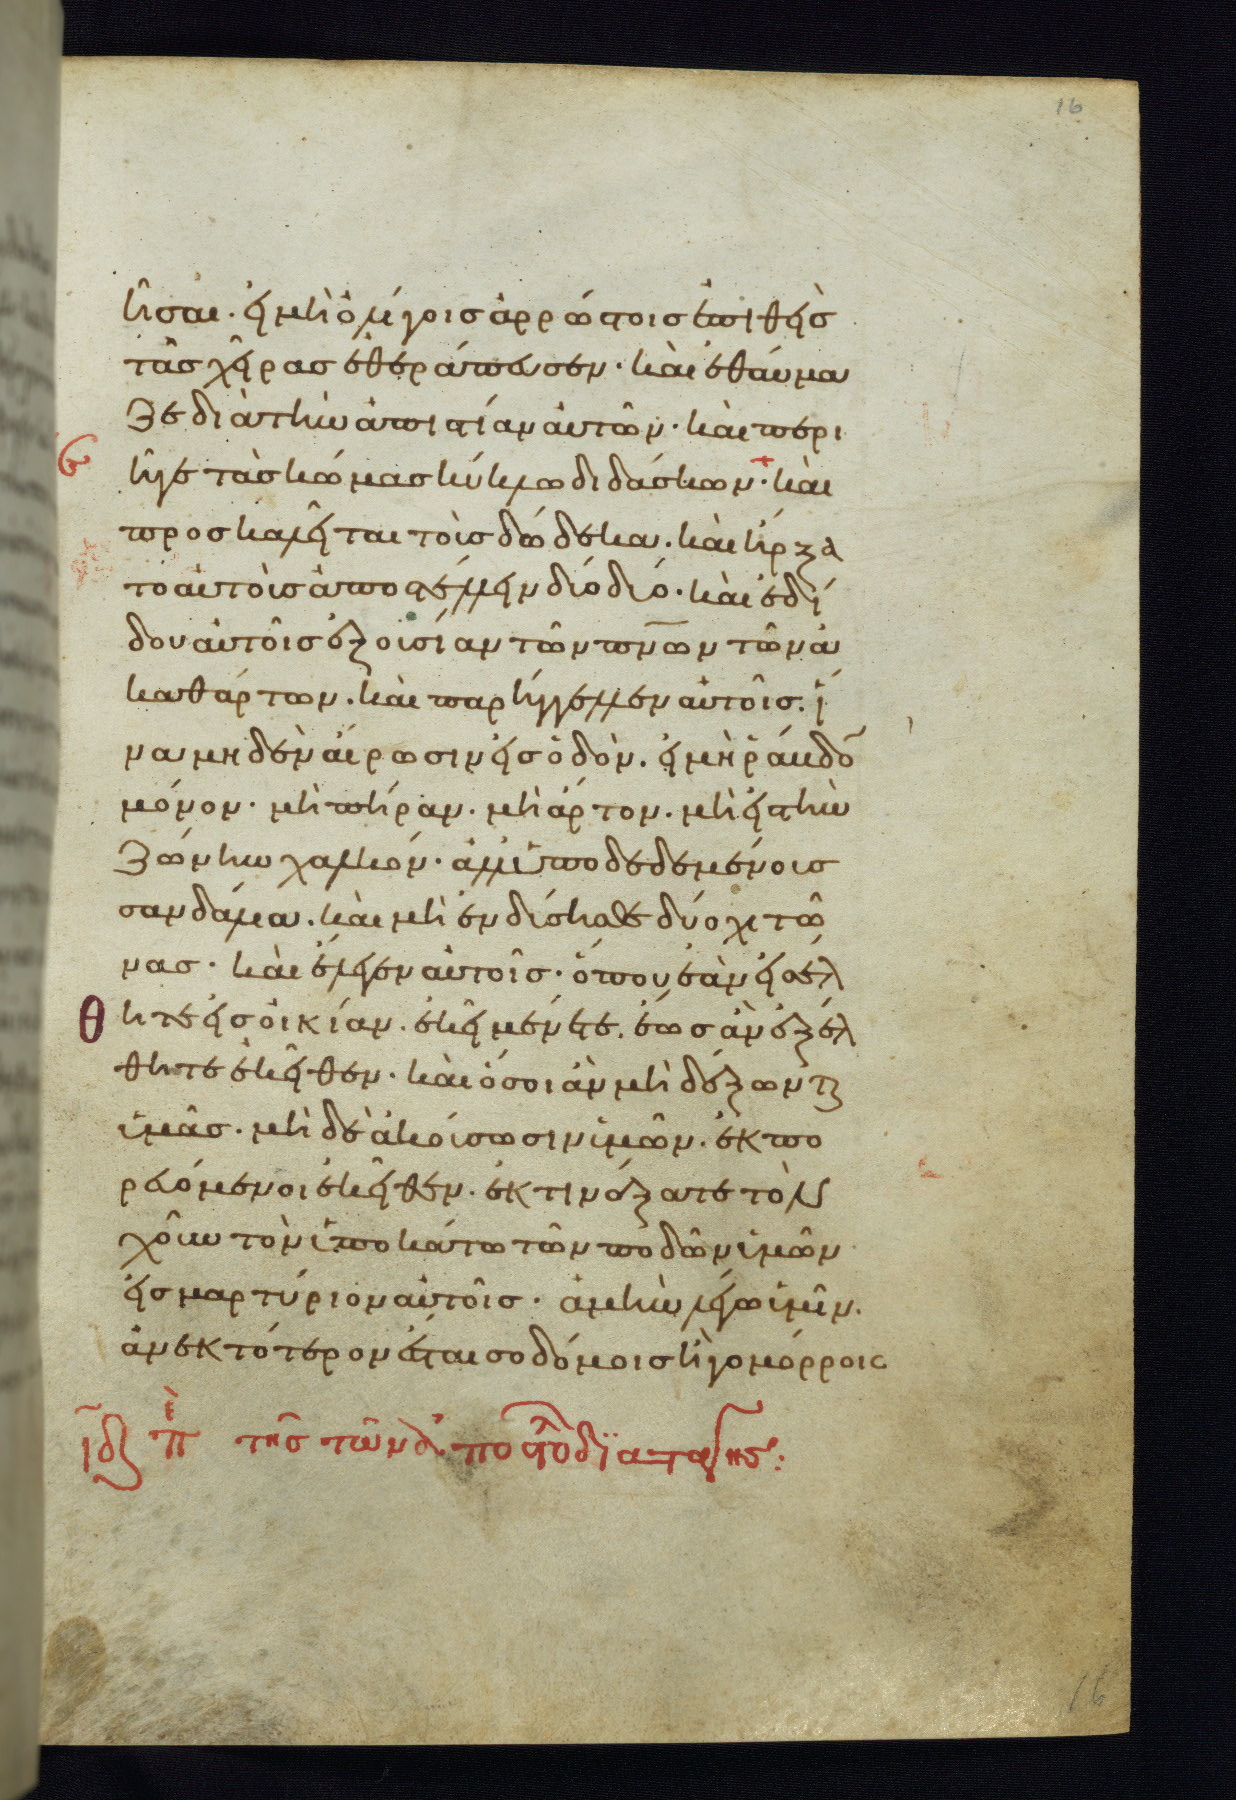 16
ῆσαι. εἰ μὴ ὀλίγοις ἀρρώστοις ἐπιθεὶσ
τὰς χεῖρας ἐθεράπευσεν. καὶ ἐθαύμα
ζε διὰ τὴν ἀπιστίαν αὐτῶν. καὶ περι
ῆγε τὰς κώμας κύκλω διδάσκων. καὶ
προσκαλεῖται τοὺς δώδεκα. καὶ ἤρξα
το αὐτοὺς ἀποστέλλειν δύο δύο. καὶ ἐδί
δου αὐτοῖς ἐξουσίαν τῶν πν̅ων τῶν ἀ
καθάρτων. καὶ παρήγγελλεν αὐτοῖς. ἵ
να μηδὲν αἴρωσιν εἰς ὁδὸν. εἰ μὴ ῥάβδο̅
μόνον. μὴ πήραν. μὴ ἄρτον. μὴ εἰς τὴν
ζώνην χαλκόν. ἀλλ' ὑποδεδεμένους
σανδάλια. καὶ μὴ ἐνδύσησθε δύο χιτῶ
νας. καὶ ἔλεγεν αὐτοῖς. ὅπου ἐὰν εἰσέλ
θ ητε εἰς οἰκίαν. ἐκεῖ μένετε. ἕως ἂν ἐξέλ
θητε ἐκεῖθεν. καὶ ὅσοι ἂν μὴ δέξωντ
ὑμᾶς. μὴ δὲ ἀκούσωσιν ὑμῶν. ἐκπο
ρευόμενοι ἐκεῖθεν. ἐκτινάξατε τὸν
χοῦν τὸν ὑποκάτω τῶν ποδῶν ὑμῶν
εἰς μαρτύριον αὐτοῖς. ἀμὴν λέγω ὑμῖν.
ἀνεκτότερον ἔσται σοδόμοις ἢ γομόρροις
ιδ πε τῆς τῶν ἀποστό διαταγῆς:
16